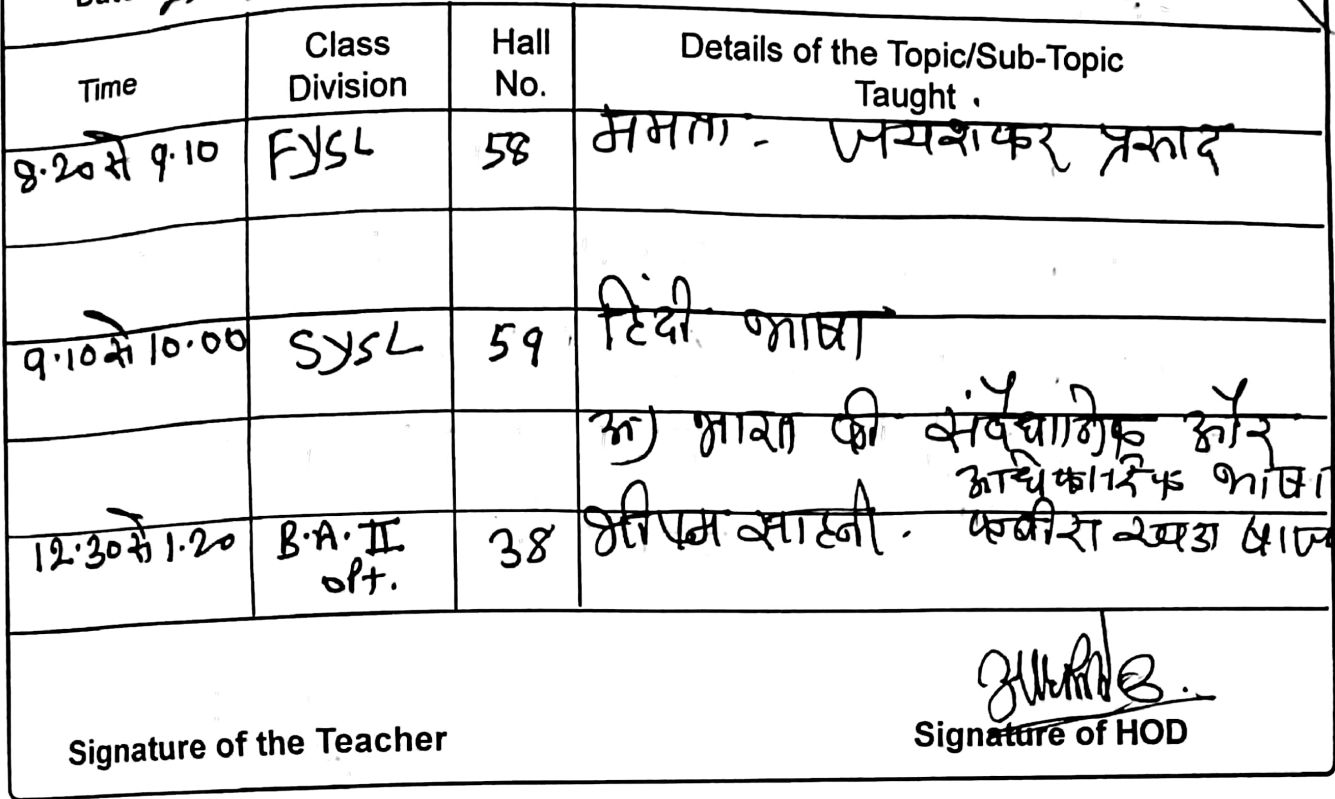 Time Class Division Hall No. Details of the Topic/Sub-Topic Taught .
8.20 से 9.10 FYSL 58 ममता - जयशंकर प्रसाद
9.10 से 10.00 SYSL 59 हिंदी भाषा
अ) भारत की संवैधानिक और
आधिकारिक भाषा
12.30 से 1.20 B.A. II opt. 38 भीष्म साहनी . कबीरा खडा बाज
Signature of the Teacher Signature of HOD